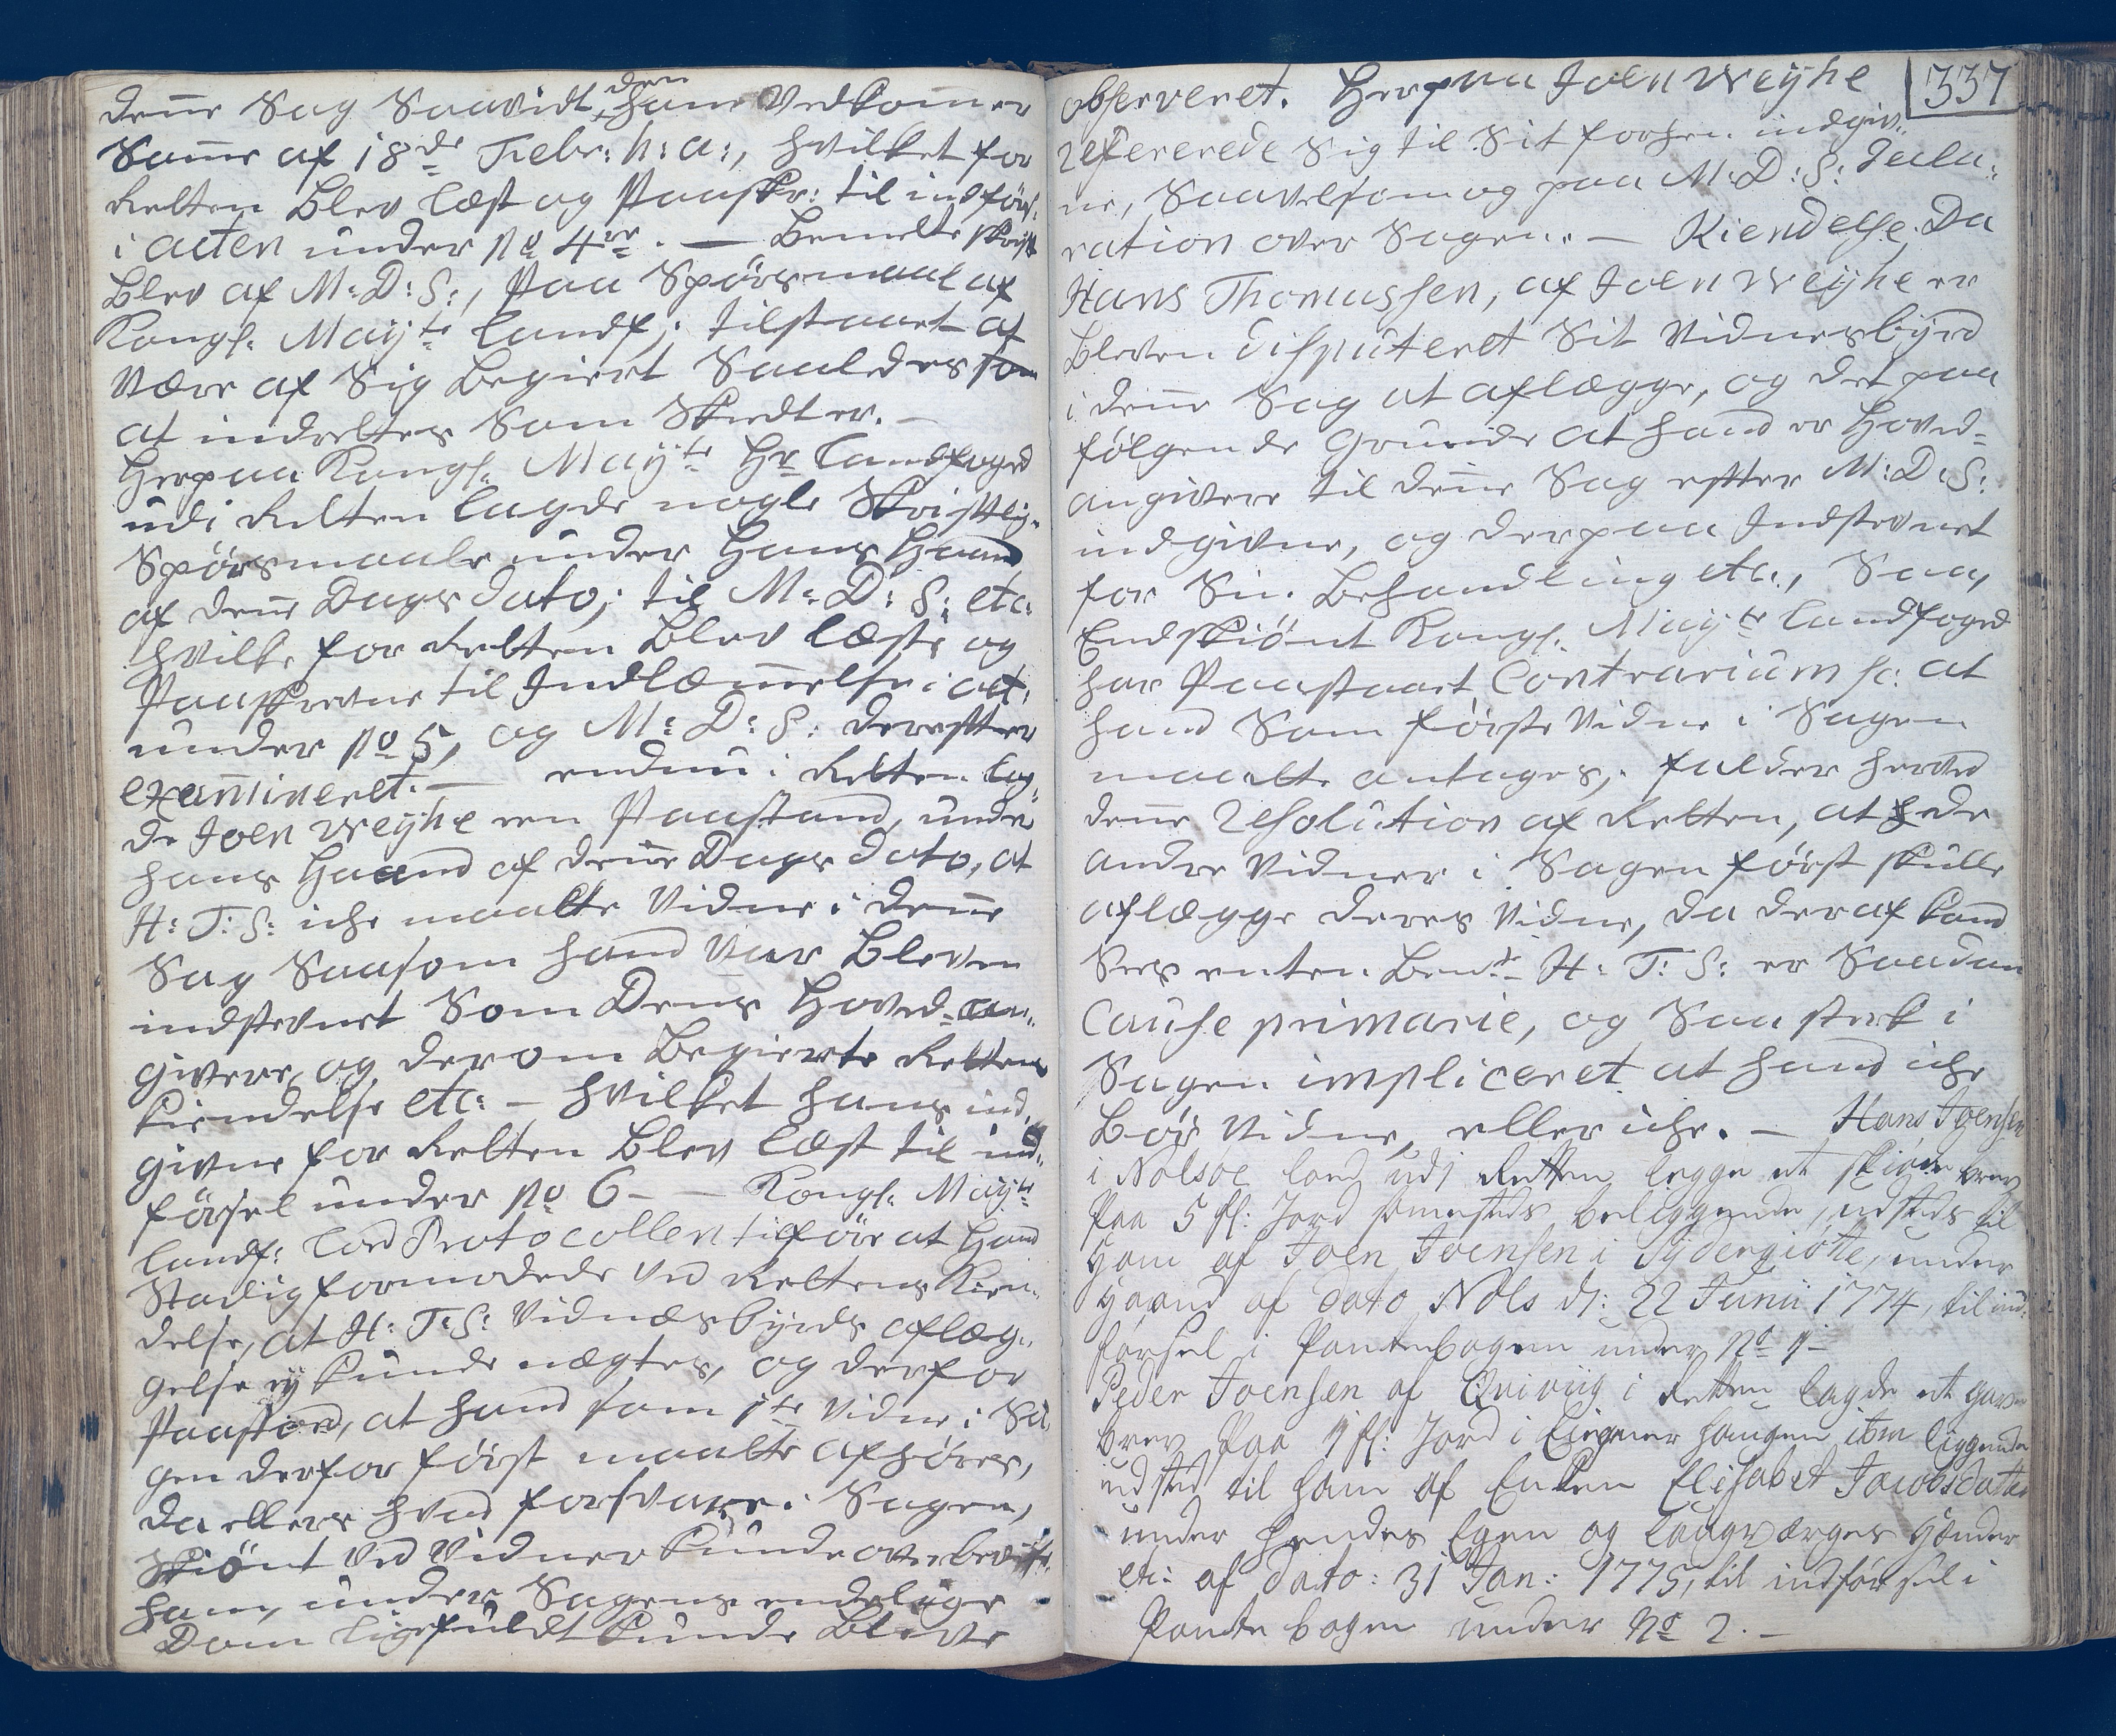 denne Sag Saavidt den ham Vedkommer
Samme af 18de Febr: h: a:, hvilket for
Retten blev læst og Paaskr: til indførs:
i acten under No 4re. — Bemelte skrift
blev af M: D: S:, Paa Spørsmaal af
Kongl. Mayts Landf: tilstaaet at
være af Sig begiert Saaledes
at indrettes Som Skedt er. —
Herpaa Kongl. Mayts Hr Landfoged
udi Retten lagde nogle Skriftlig:
Spørsmaale under Hans Haand
af denne Dags dato, til M: D: S: etc:
hvilke for Retten blev læste og
Paaskrevne til Indlæmmelse i act:
under No 5, og M: D: S: derefter
examineret. — endnu i Retten lag,,
de Joen Weyhe een Paastand, under
hans Haand af denne Dags dato, at
H: T: S: iche maatte Vidne i denne
Sag Saasom hand var bleven
indstevnet Som Dens Hoved-an,,
givere, og derom begierte Rettens
kiendelse etc: — hvilket hans ind,,
givne for Retten blev læst til ind,,
førsel under No 6 — Kongl: Mayts
Landf: lod Protocollen tilføre at Hand
Stadig formodede ved Rettens Kien,,
delse, at H: T: S: Vidnæsbyrds aflæg,,
gelse ey kunde nægtes, og derfor
Paastod, at hand som 1te Vidne i Sa,,
gen derfor først maatte afhøres,
da ellers hvad forsvare i Sagen,
skiønt ved Vidner kunde overbevises
ham, under Sagens endelige
Dom ligefuldt kunde bleve
337
observeret. Herpaa Joen Weyhe
refererede Sig til Sit forhen indgiv,,
ne, Saavelsom og paa M: D: S: decla,,
ration over Sagen. — Kiendelse. Da
Hans Thomassen, af Joen Weyhe er
bleven disputeret Sit Vidnesbyrd
i denne Sag at aflægge, og det paa
følgende Grunde at hand er Hoved-
angivere til denne Sag efter M: D: S:
indgivne, og derpaa Indstevnet
for Sin behandling etc:, Saa,
Endskiønt Kongl. Mayts Landfoged
har Paastaaet Contrarium sc: at
hand Som første Vidne i Sagen
maatte antages, falder herved
denne Resolution af Retten, at de
andre Vidner i Sagen først skulle
aflægge deres Vidne, da deraf kand
Sees enten Bemte H: T: S: er Saadan
Cause primarie, og Saa sterk i
Sagen impliceret at hand iche
bør Vidne, eller iche. — Hans Joensen
i Nolsøe lod udi Retten legge et skiøde brev
Paa 5 fl: Jord sammesteds beliggende, udsteds til
Ham af Joen Joensen i Sydergiøtte, under
Haand af dato Nols d: 22 Junii 1774, til ind,,
førsel i Pantebogen under No 1 —
Peder Joensen af Qviviig i Retten lagde et gave
brev Paa 1 fl: Jord i haugen ibm liggende
udsted til ham af Enken Elisabet Jacobsdatter
under hendes Egen og Laugværges Hænder
etc: af dato: 31 Jan: 1775, til indførsel i
Pante bogen under No 2. —